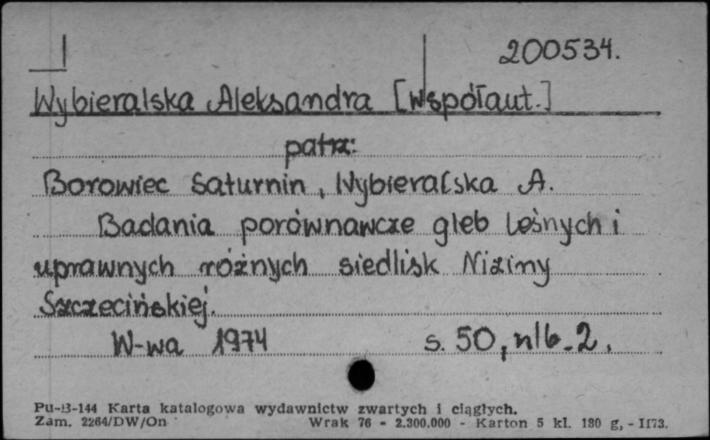 200534.
Wybieralska Aleksandra [Współaut.]
patrz:
Borowiec Saturnin, Wybieralska A.
Badania porównawcze gleb leśnych i
uprawnych różnych siedlisk Niziny
Szczecińskiej.
W-wa 1974 s. 50, nlb. 2.
Pu-B-144 Karta katalogowa wydawnictw zwartych i ciągłych.
Zam. 2264/DW/On Wrak 76 - 2.300.000 - Karton 5 kl. 180 g, - II73.